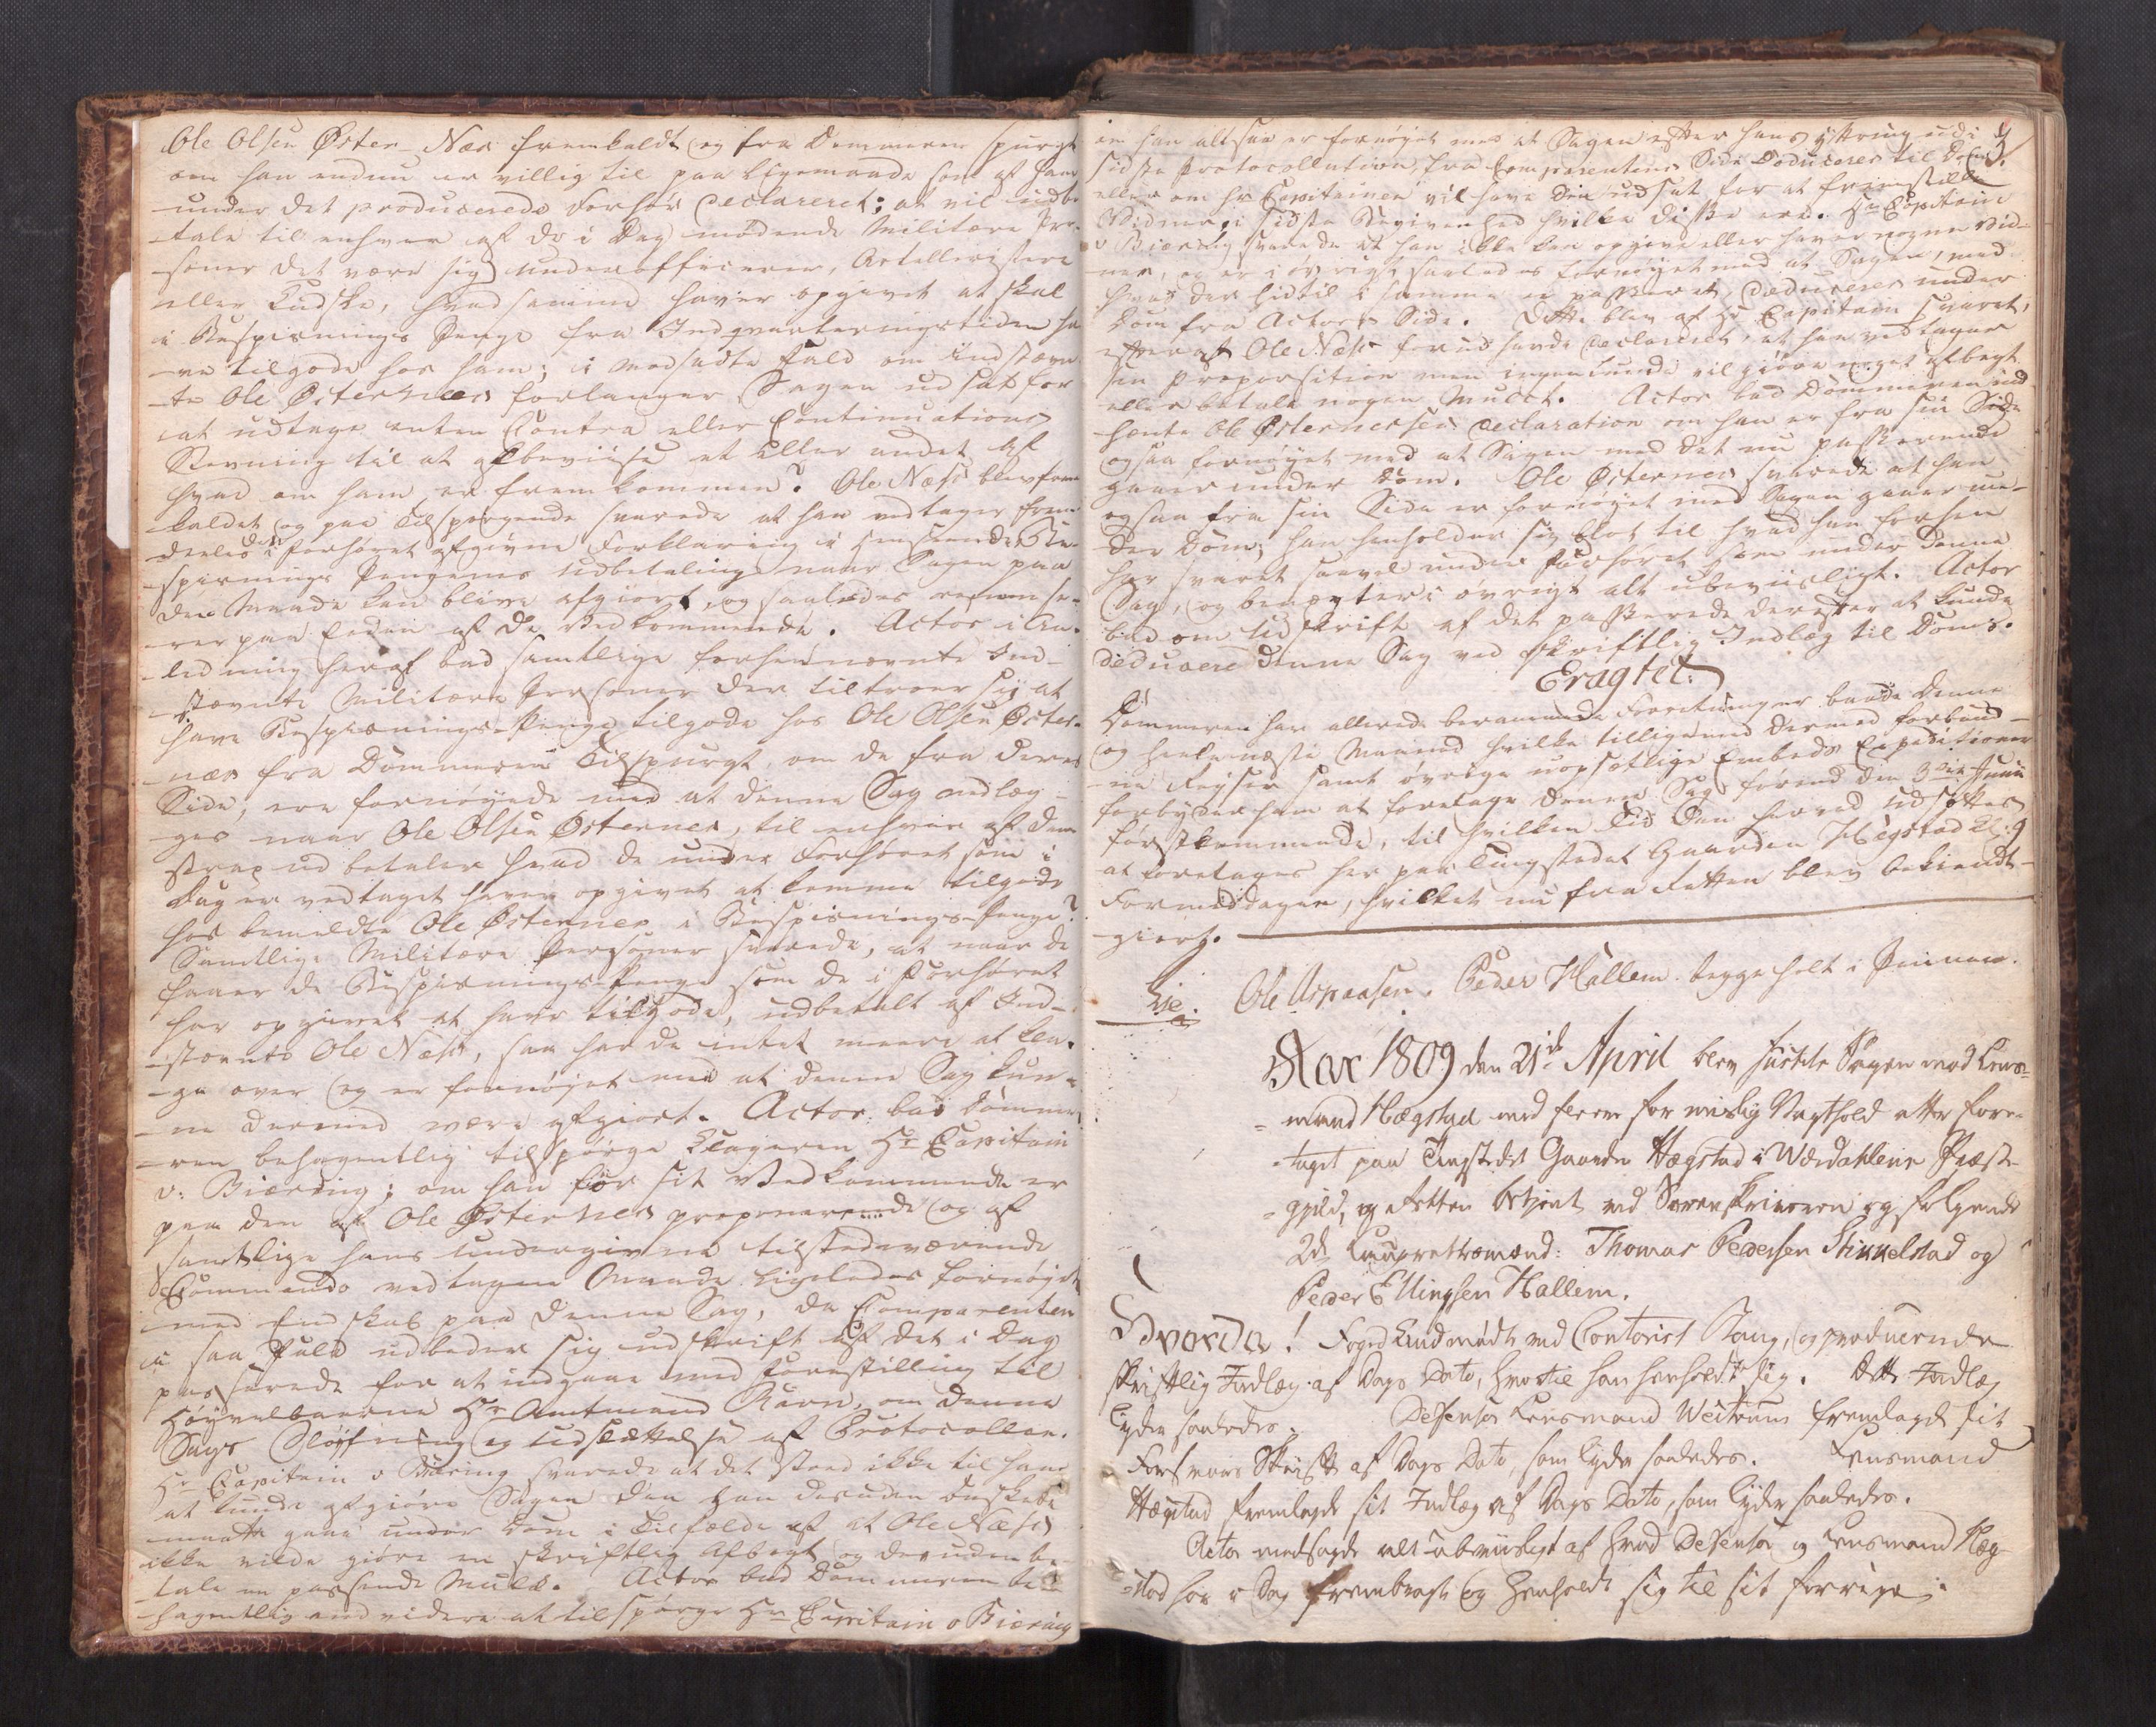 Ole Olsen Øster-Næs fremkaldt og fra Dommeren spurgt
om han endnu er villig til paa ligemaade som af ham
under det producerede Forhør declareret; at vil udbe-
tale til enhver af de i Dag mødende Militære Per-
soner det være sig Underofficerer, Artellerister
eller Kudske, hvad samme haver opgivet at skal
i Bespisnings Penge fra Indqvarteringstiden ha-
ve tilgode hos ham; i modsatte Fald om Indstævn-
te Ole Østernæs forlanger Sagen udsat for
at udtage enten Contra eller Continuations
Stevning til at afbeviise et eller andet af
hvad om ham er fremkommen? Ole Næss blev frem-
kaldet og paa Tilspørgende svarede at han vedtager frem-
deeles i Forhøret afgivne Forklaring i Henseende Be-
spisnings Pengenes Udbetaling naar Sagen paa
den Maade kan blive afgiort, og saaledes
rer paa Eeden af de Vedkommende. Actor i An-
ledning heraf bad samtlige forhennævnte Ind-
stævnte Militære Personer der tiltroer sig at
have Bespisnings-Penge tilgode hos Ole Olsen Øster-
næs fra Dommeren Tilspurgt, om de fra deres
Side, ere fornøyede med at denne Sag nedlæg-
ges naar Ole Olsen Østernes, til enhver af dem
strax udbetaler hvad de under Forhøret som i
Dag er vedtaget haver opgivet at komme tilgode
hos bemeldte Ole Østernes i Bespisnings-Penge?
Samtlige Militære Personer svarede, at naar de
faaer de Bespisnings Penge som de i Forhøret
har opgivet at have tilgode, udbetalt af Ind-
stævnte Ole Næss, saa har de intet meere at kla-
ge over og er fornøjet med at denne Sag kun-
ne dermed være afgiort. Actor bad Domme-
ren behagentlig tilspørge Klageren Hr Capitain
v: Biæring; om han for sit Vedkommende er
paa den af Ole Østernes proponerende og af
samtlige hans undergivne tilstedeværende
Commando vedtagen Maade ligeledes fornøjet
med Endskab paa denne Sag, da Comparenten
i saa Fald udbeder sig udskrift af det i Dag
passerede for at indgaae med Forestilling til
Høyvelbaarne Hr Amtmand Ravn, om denne
Sags Sløyfning og udslættelse af Protocollen.
Hr Capitain v Biæring svarede at det stoed ikke til ham
at kunde afgiøre Sagen den han desuden ønskede
maatte gaae under Dom i Tilfælde af at Ole Næss
ikke vilde giøre en skriftlig Afbegt og desuden be-
tale en passende Mulct. Actor bad Dommeren be-
hagentlig end videre at tilspørge Hr Capitain v Biæring
3.
om han altsaa er fornøyet med at Sagen efter hans yttring udi
sidste Protocollation, fra Comparentens Side Deduceres til Dom
eller om Hr Capitainen vil have den udsat for at fremstille
Vidner i sidste Begivenhed hvilke disse ere. Hr Capitain
v Biæring svarede at han ikke kan opgive eller haver nogen Vid-
ner, og er i øvrigt saaledes fornøyet med at Sagen, med
hvad der hidtil i samme er passeret, deduceres under
Dom fra Actors Side. Dette blev af Hr Capitain svaret,
efter at Ole Næss forud havde declareret, at han vedtager
sin Preporsition men ingenlunde vil giøre noget afbegt
eller betale nogen Mulct. Actor bad Dommeren ind-
hente Ole Østernessen Declaration om han er fra sin Side
ogsaa fornøyet med at Sagen med det nu passerende
gaaer under Dom. Ole Østernes svarede at han
ogsaa fra sin Side er fornøyet med Sagen gaaer un-
der Dom; han henholder sig blot til hvad han forhen
har svaret saavel under Forhøret som under denne
Sag, og benægter i øvrigt alt ubeviisligt. Actor
bad om Udskrift af det passerede derefter at kunde
deducere denne Sag ved skriftlig Indlæg til Doms.
Eragtet:
Dommeren har allerede berammede Forretninger baade denne
og heele næste Maaned hvilke tilligemed dermed forbund-
ne Reyser samt øvrige uopsætlige Embeds Expeditioner
forbyder ham at foretage denne Sag førend den 3die Junii
førstkommende, til hvilken Tid den herved udsættes
at foretages her paa Tingstedet Gaarden Hægstad Kl: 9
Formiddagen, hvilket nu fra Retten blev bekiendt-
giort.
Lie. Ole Aspaasen. Peder Hallem begge holt i Pennen.
Aar 1809 den 21de April blev Justits Sagen mod Lens-
mand Hægstad med fleere for mislig Vagthold atter fore-
taget paa Tingstedet Gaarden Hægstad i Værdahlens Præste-
gjeld, og Retten betjent ved Sorenskriveren og følgende
2de Laugrettesmænd: Thomas Pedersen Stiklelstad og
Peder Ellingsen Hallem.
Hvorda! Foged Lund mødte ved Contorist Stang, og producerede
skriftlig Indlæg af Dags Dato, hvortil han henholdt sig. Dette Indlæg
lyder saaledes. Defensor Lensmand Westrum fremlagde sit
Forsvars Skrift af Dags Dato, som lyder saaledes. Lensmand
Hægstad fremlagde sit Indlæg af Dags Dato, som lyder saaledes.
Actor modsagde alt ubeviisligt af hvad Defensor og Lensmand Hæg-
stad har i Dag frembragt og henholdt sig til sit forrige